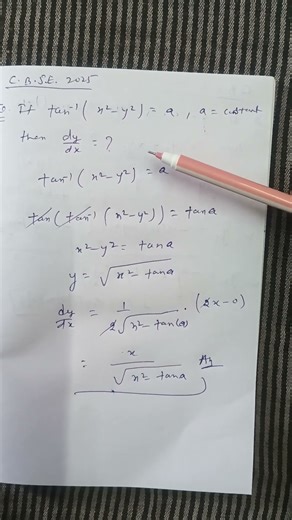 C.B.S.E. 2025
If tan⁻¹(x²-y²) = a, a = constant
then dy/dx = ?
tan⁻¹(x²-y²) = a
tan(tan⁻¹(x²-y²)) = tana
x²-y² = tana
y = √(x²-tana)
dy/dx = 1/(2√(x²-tan(a))) · (2x-0)
= x/√(x²-tana) Ans